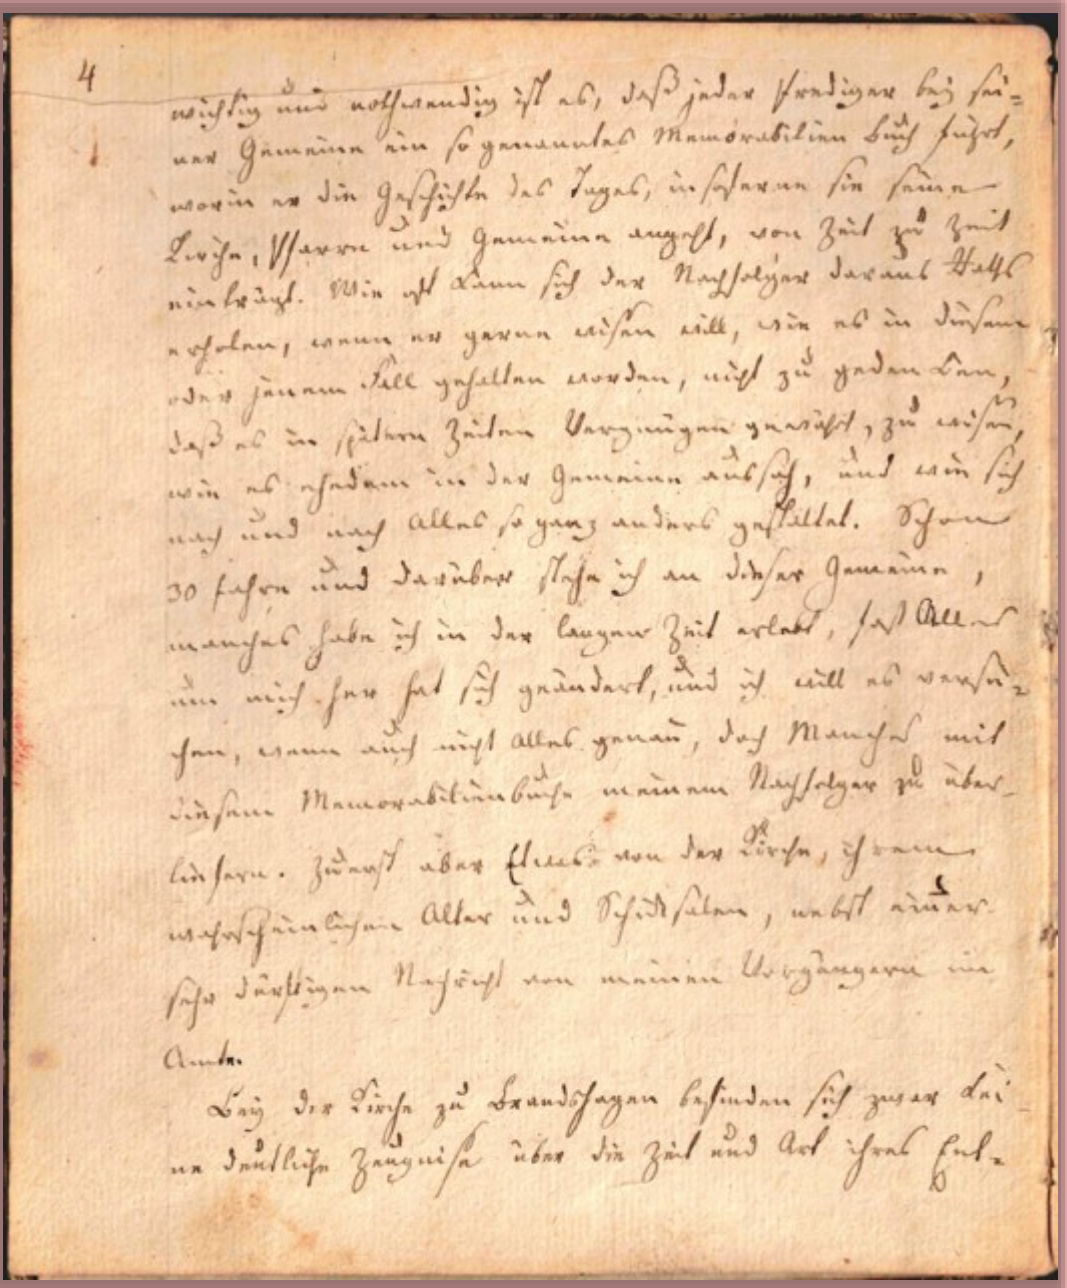 4
wichtig und nothwendig ist es, daß jeder Prediger bey sei-
ner Gemeine ein so genanntes Memorabilien Buch führt,
worin er die Geschichte des Tages, insoferne sie seine
Kirche, Pfarre und Gemeine angeht, von Zeit zu Zeit
einträgt. Wie oft kann sich der Nachfolger daraus Raths
erholen, wenn er gerne wißen will, wie es in diesem
oder jenem Fall gehalten worden, nicht zu gedenken,
daß es in spätern Zeiten Vergnügen gewährt, zu wißen,
wie es ehedem in der Gemeine aussah, und wie sich
nach und nach Alles so ganz anders gestaltet. Schon
30 Jahre und darüber stehe ich an dieser Gemeine,
manches habe ich in der langen Zeit erlebt, fast Alles
um mich her hat sich geändert, und ich will es versu-
chen, wenn auch nicht Alles genau, doch Manches mit
diesem Memorabilienbuche meinem Nachfolger zu über-
liefern. Zuerst aber Etwas von der Kirche, ihrem
wahrscheinlichen Alter und Schicksalen, nebst einer
sehr dürftigen Nachricht von meinen Vorgängern im
Amte.
Bey der Kirche zu Brandshagen befinden sich zwar kei-
ne deutliche Zeugniße über die Zeit und Art ihres Ent-